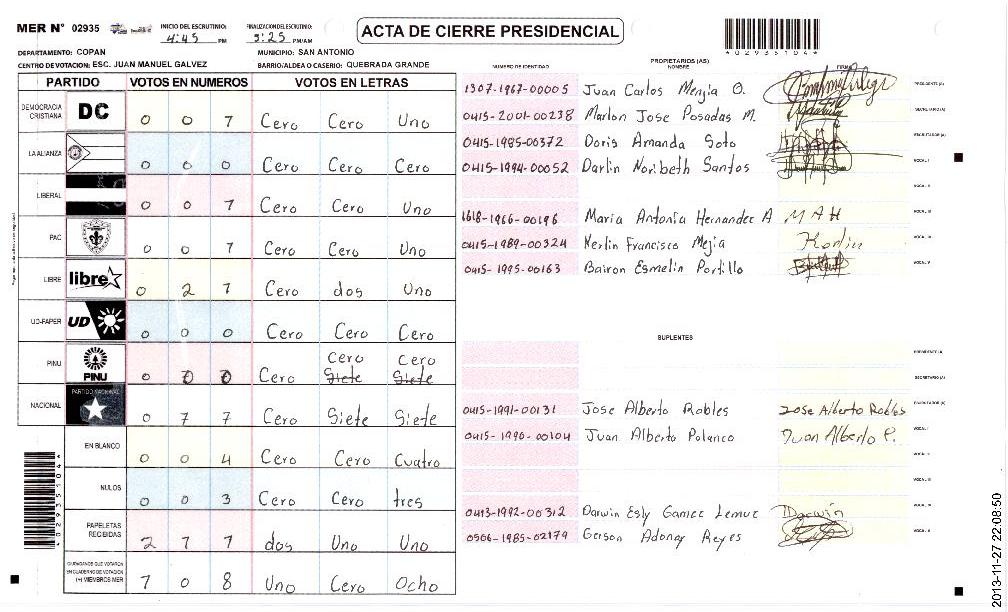 MER N° 02935 INICIO DEL ESCRUTINIO: 4:45 PM FINALIZACION DEL ESCRUTINIO: 5:25 PM/AM ACTA DE CIERRE PRESIDENCIAL *02935104*
DEPARTAMENTO: COPAN MUNICIPIO: SAN ANTONIO
CENTRO DE VOTACION: ESC. JUAN MANUEL GALVEZ BARRIO/ALDEA O CASERIO: QUEBRADA GRANDE
PARTIDO VOTOS EN NUMEROS VOTOS EN LETRAS
DEMOCRACIA CRISTIANA DC 0 0 1 Cero Cero Uno
LA ALIANZA 0 0 0 Cero Cero Cero
LIBERAL 0 0 1 Cero Cero Uno
PAC 0 0 1 Cero Cero Uno
LIBRE libre 0 2 1 Cero dos Uno
UD-FAPER UD 0 0 0 Cero Cero Cero
PINU PINU 0 0 0 Cero Siete Siete Cero Cero
NACIONAL PARTIDO NACIONAL 0 7 7 Cero Siete Siete
EN BLANCO 0 0 4 Cero Cero Cuatro
NULOS 0 0 3 Cero Cero tres
PAPELETAS RECIBIDAS 2 1 1 dos Uno Uno
CIUDADANOS QUE VOTARON EN CUADERNO DE VOTACION (+) MIEMBROS MER 1 0 8 Uno Cero Ocho
*02935104*
PROPIETARIOS (AS)
NUMERO DE IDENTIDAD NOMBRE FIRMA
1307-1967-00005 Juan Carlos Menjia O. PRESIDENTE (A)
0415-2001-00238 Marlon Jose Posadas M. SECRETARIO (A)
0415-1985-00372 Doris Amanda Soto ESCRUTADOR (A)
0415-1994-00052 Darlin Noribeth Santos VOCAL I
VOCAL II
1618-1966-00196 Maria Antonia Hernandez A M A H VOCAL III
0415-1989-00324 Kerlin Francisco Mejia VOCAL IV
0415-1995-00163 Bairon Esmelin Portillo VOCAL V
SUPLENTES
PRESIDENTE (A)
SECRETARIO (A)
0415-1991-00131 Jose Alberto Robles Jose Alberto Robles ESCRUTADOR (A)
0415-1996-00104 Juan Alberto Polanco Juan Alberto P. VOCAL I
VOCAL II
VOCAL III
0413-1992-00312 Darwin Esly Gamez Lemuz Darwin VOCAL IV
0506-1985-02179 Gerson Adonay Reyes VOCAL V
2013-11-27 22:08:50